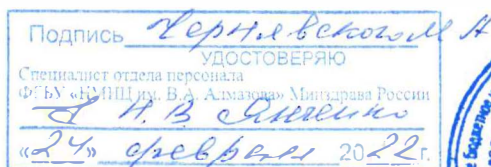 Подпись Чернявского М А
УДОСТОВЕРЯЮ
Специалист отдела персонала
ФГБУ «НМИЦ им. В.А. Алмазова» Минздрава России
Н.В. Янченко
«24» февраля 2022 г.